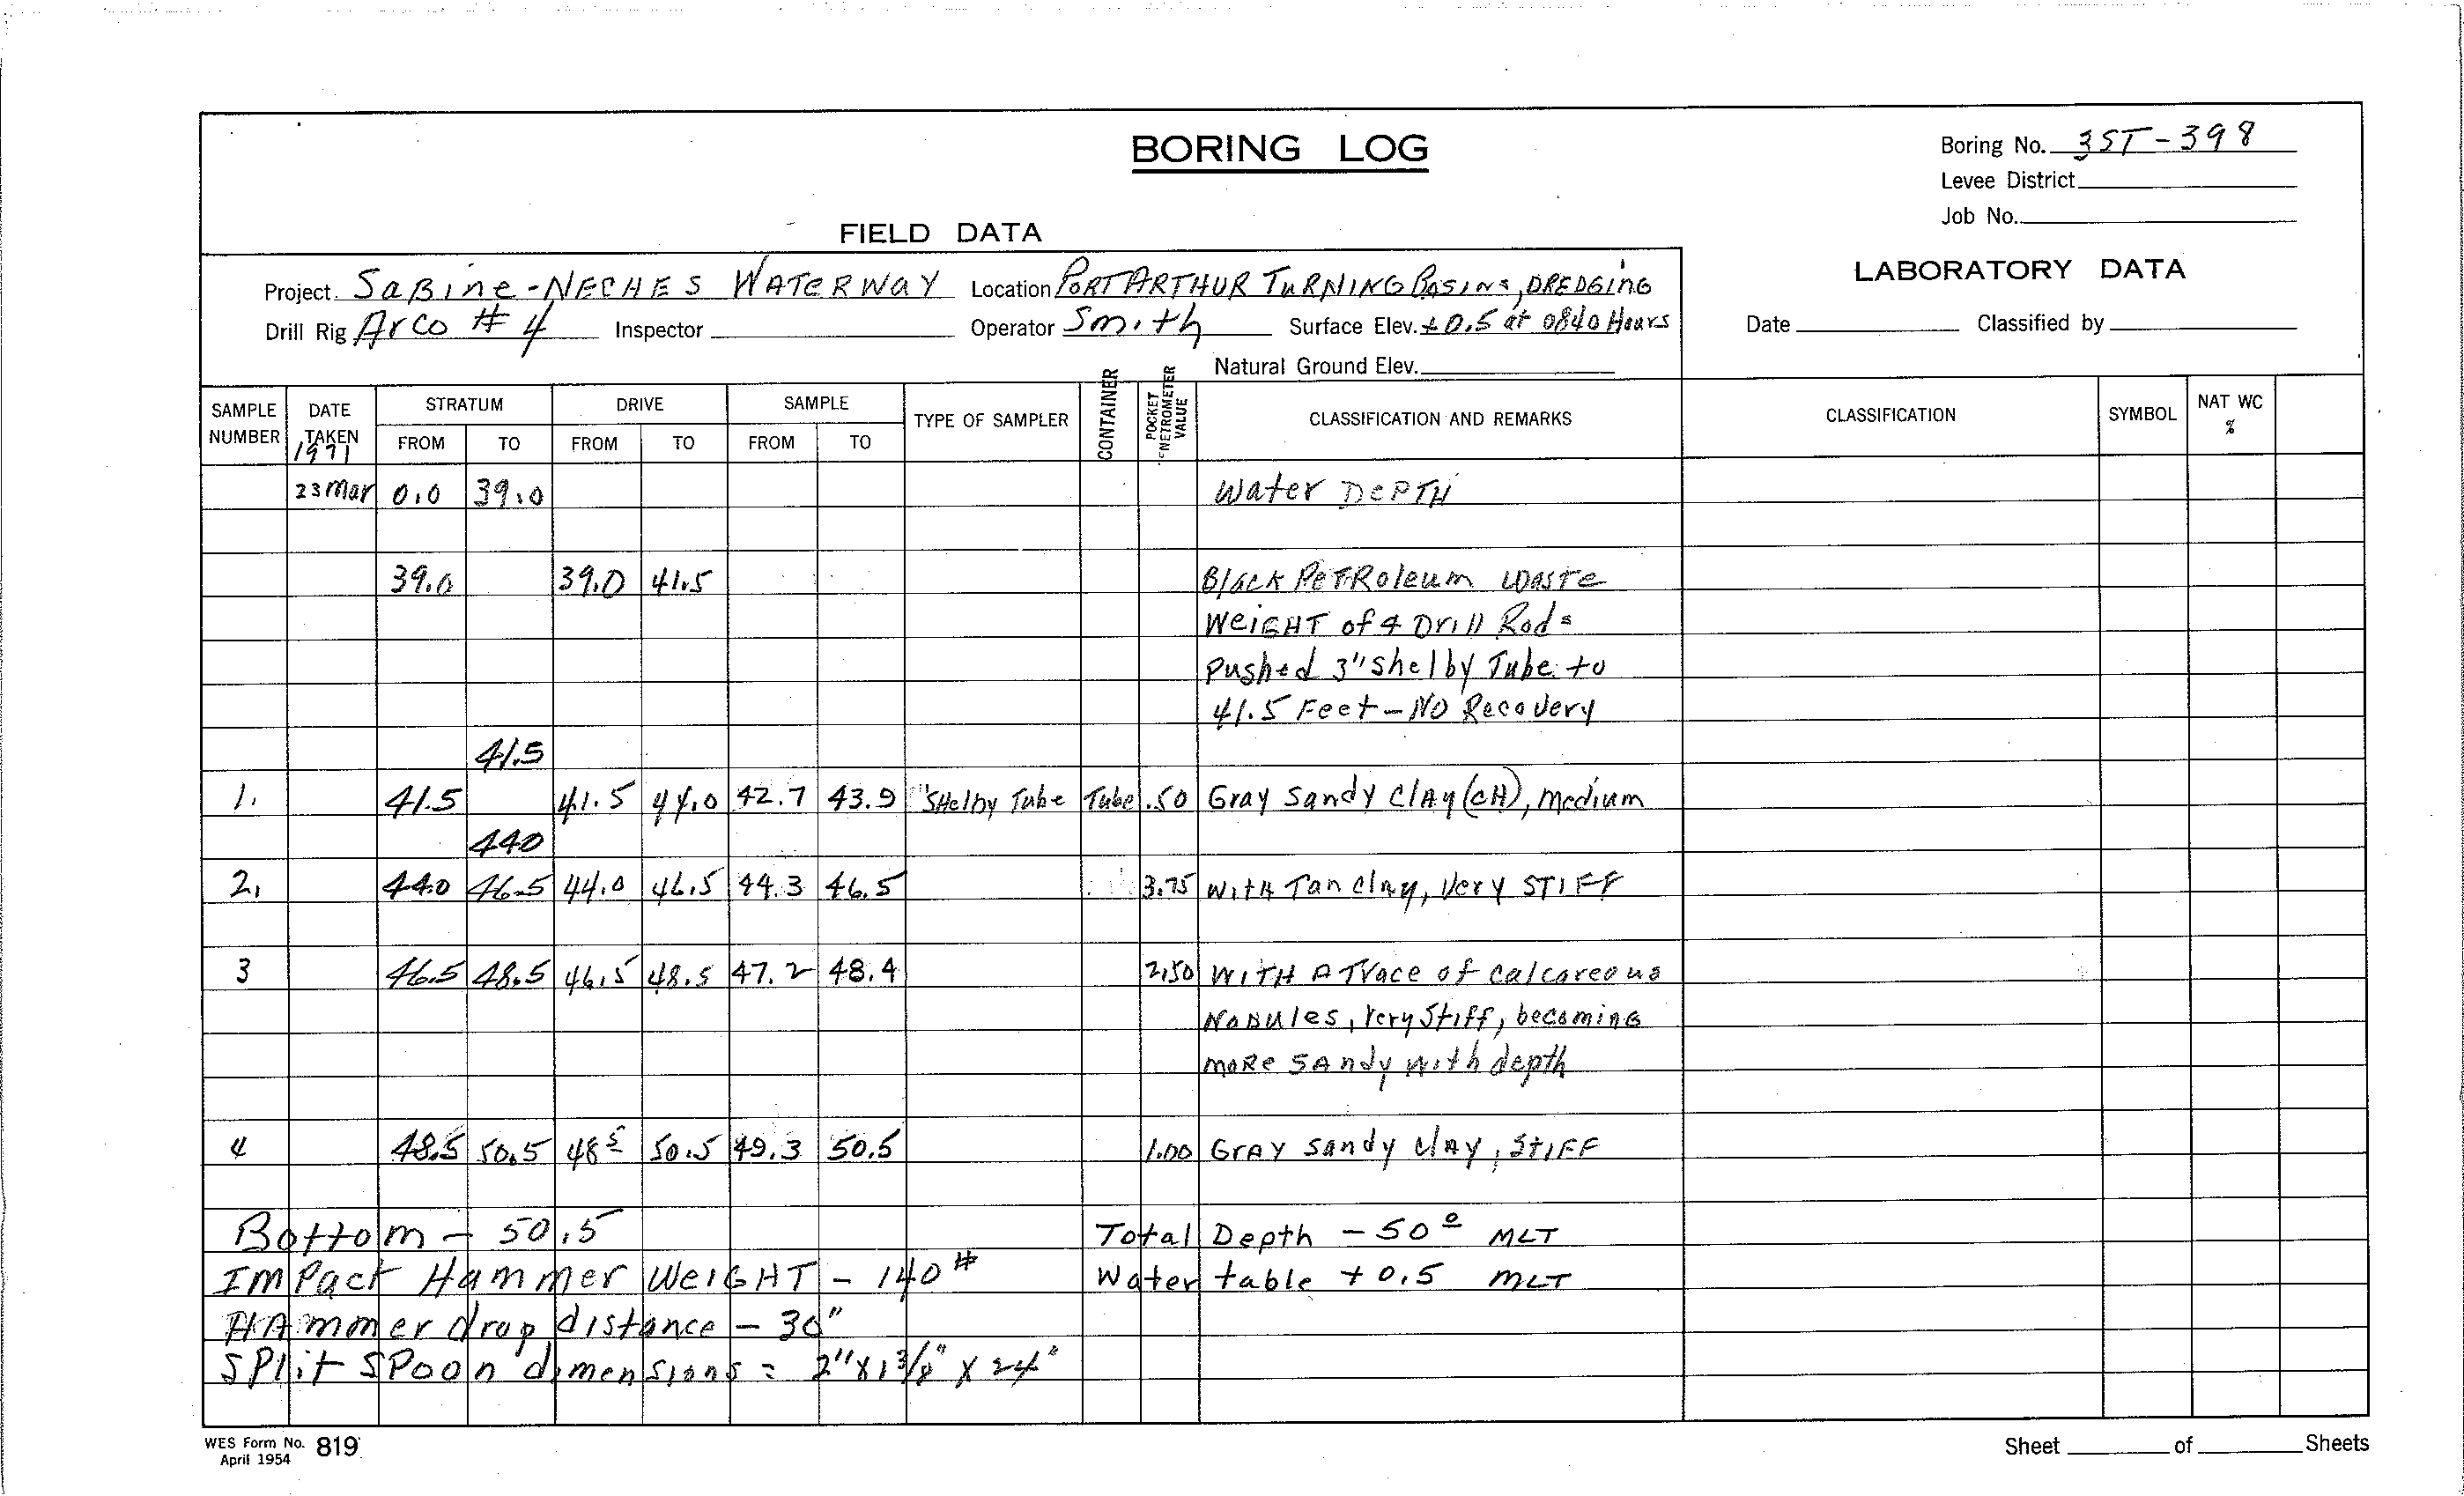 BORING LOG
Boring No. 3ST-398
Levee District
Job No.
FIELD DATA
LABORATORY DATA
Project. SaBine-NECHES WATERWAY Location PORT ARTHUR TURNING BASINS, DREDGING
Drill Rig Arco # 4 Inspector Operator Smith Surface Elev. +0.5 at 0840 Hours
Date Classified by
Natural Ground Elev.
SAMPLE NUMBER DATE TAKEN 1971 STRATUM FROM TO DRIVE FROM TO SAMPLE FROM TO TYPE OF SAMPLER CONTAINER POCKET PENETROMETER VALUE CLASSIFICATION AND REMARKS CLASSIFICATION SYMBOL NAT WC %
23 Mar 0.0 39.0 Water DEPTH
39.0 39.0 41.5 Black PETRoleum waste
WeIGHT of 4 Drill Rods
Pushed 3" shelby Tube to
41.5 Feet - NO Recovery
41.5
1. 41.5 41.5 44.0 42.7 43.9 "SHelby Tube Tube .50 Gray Sandy Clay (CH), medium
440
2. 44.0 46.5 44.0 46.5 44.3 46.5 3.75 WitH Tan clay, Very STIFF
3 46.5 48.5 46.5 48.5 47.2 48.4 2.50 WITH A Trace of calcareous
NODules, Very Stiff, becoming
more Sandy with depth
4 48.5 50.5 48 5 50.5 49.3 50.5 1.00 Gray Sandy Clay, StIFF
Bottom - 50.5 Total Depth - 50 0 MLT
ImPact Hammer WeIGHT - 140 # Water table + 0.5 MLT
HAmmer drop distance - 30"
SPlit SPoon dimensions = 2" X 1 3/8" X 24"
WES Form No. 819
April 1954
Sheet of Sheets